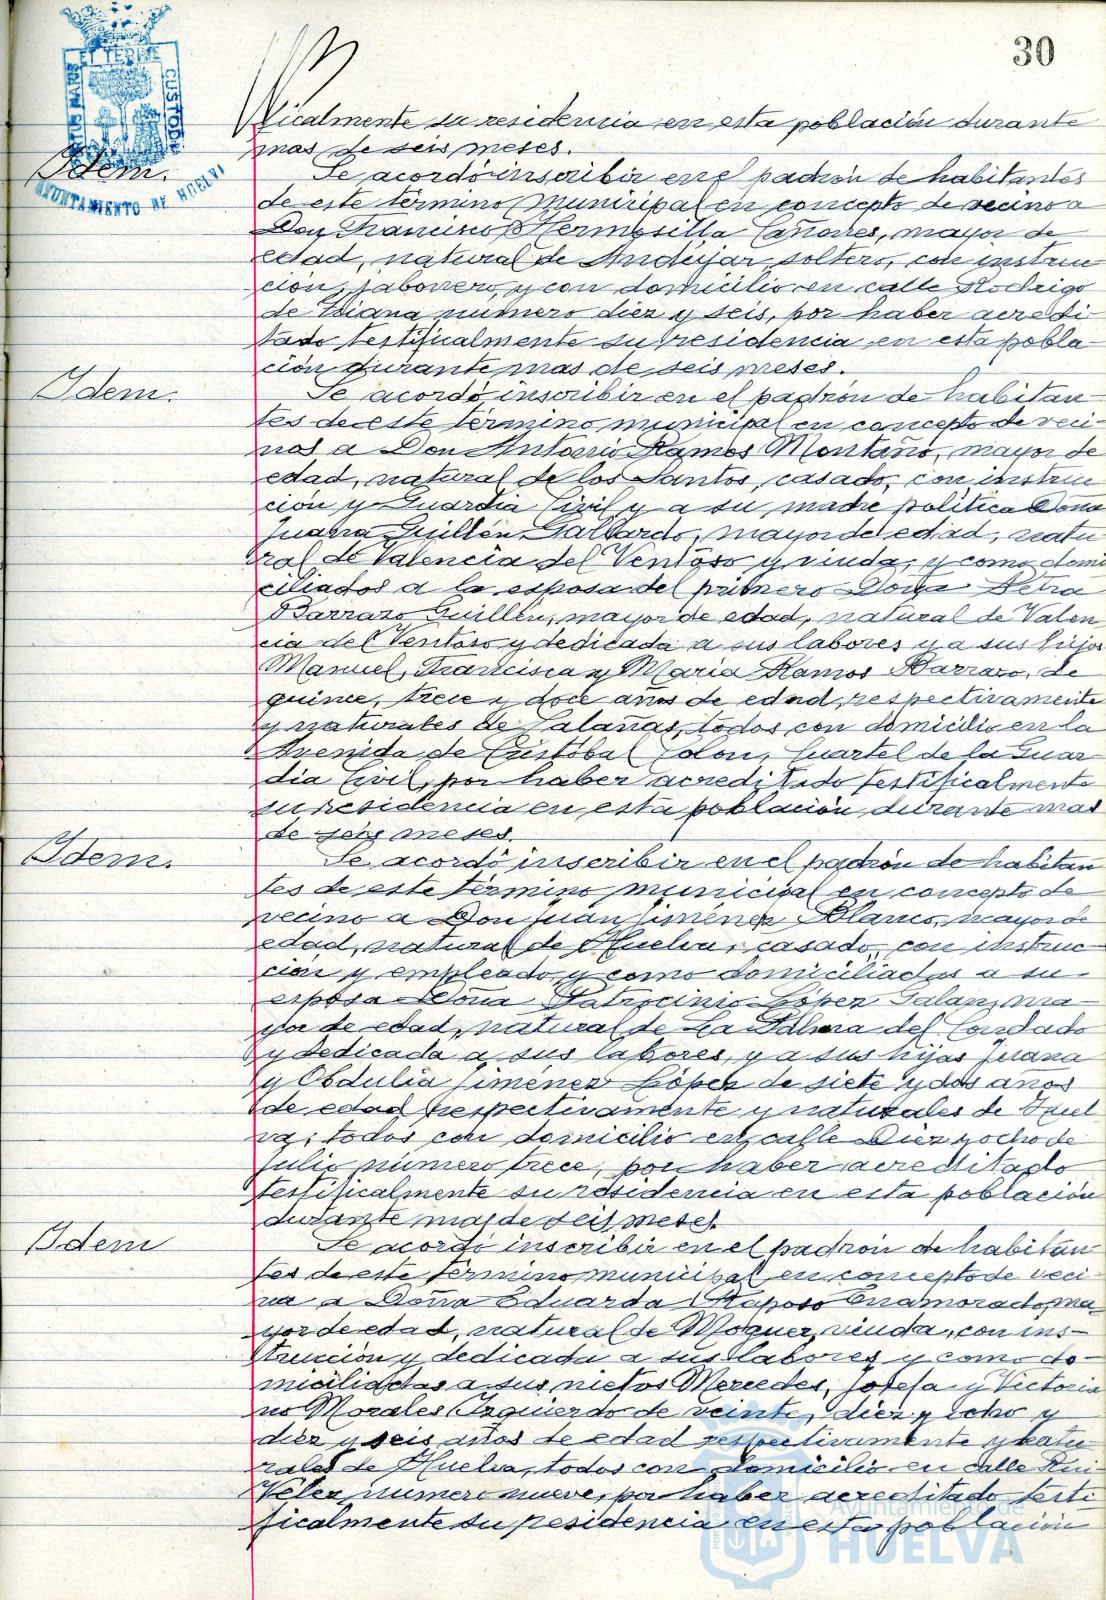 30
PORTUS MARIS ET TERRE CUSTODIA
AYUNTAMIENTO DE HUELVA
ficalmente su residencia en esta población durante
mas de seis meses.
Idem.
Se acordó inscribir en el padrón de habitantes
de este término municipal en concepto de vecino a
Don Francisco Hermosilla Cañones, mayor de
edad, natural de Andújar, soltero, con instruc
ción, jabonero, y con domicilio en calle Rodrigo
de Triana número diez y seis, por haber acredi-
tado testificalmente su residencia en esta pobla-
ción durante mas de seis meses.
Idem.
Se acordó inscribir en el padrón de habitan-
tes de este término municipal en concepto de veci-
nos a Don Antonio Ramos Montaño, mayor de
edad, natural de los Santos, casado, con instruc
ción y Guardia Civil y a su madre política Doña
Juana Guillén Gallardo, mayor de edad, natu
ral de Valencia del Ventoso y viuda, y como domi
ciliados a la esposa del primero Doña Petra
Barraso Guillén, mayor de edad, natural de Valen
cia del Ventoso y dedicada a sus labores y a sus hijos
Manuel, Francisca y María Ramos Barraso, de
quince, trece y doce años de edad, respectivamente
y naturales de Calañas, todos con domicilio en la
Avenida de Cristóbal Colón, Cuartel de la Guar
dia Civil, por haber acreditado testificalmente
su residencia en esta población durante mas
de seis meses.
Idem.
Se acordó inscribir en el padrón de habitan
tes de este término municipal en concepto de
vecino a Don Juan Jiménez Blanco, mayor de
edad, natural de Huelva, casado, con instruc-
ción y empleado, y como domiciliadas a su
esposa Doña Patrocinio López Galan, ma-
yor de edad, natural de La Palma del Condado
y dedicada a sus labores, y a sus hijas Juana
y Obdulia Jiménez López de siete y dos años
de edad respectivamente y naturales de Huel
va; todos con domicilio en calle Diez y ocho de
Julio número trece, por haber acreditado
testificalmente su residencia en esta población
durante mas de seis meses.
Idem
Se acordó inscribir en el padrón de habitan
tes de este término municipal en concepto de veci
na a Doña Eduarda Raposo Enamorado, ma-
yor de edad, natural de Moguer, viuda, con ins-
trucción y dedicada a sus labores y como do-
miciliados a sus nietos Mercedes, Josefa y Victoria
no Morales Izquierdo de veinte, diez y ocho y
diez y seis años de edad respectivamente y natu
rales de Huelva, todos con domicilio en calle Rui
Vélez número nueve, por haber acreditado testi
ficalmente su residencia en esta población
Ayuntamiento de
HUELVA